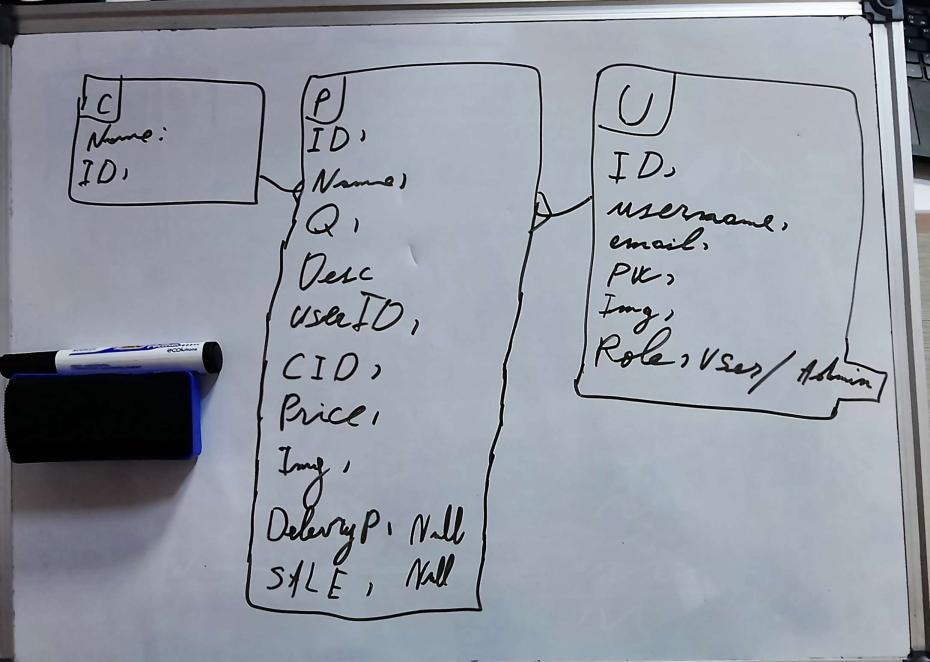 C
Name:
ID,
P
ID,
Name,
Q,
Desc
UserID,
CID,
Price,
Img,
DelevryP, Null
SALE, Null
U
ID,
username,
email,
PW,
Img,
Role, User/Admin